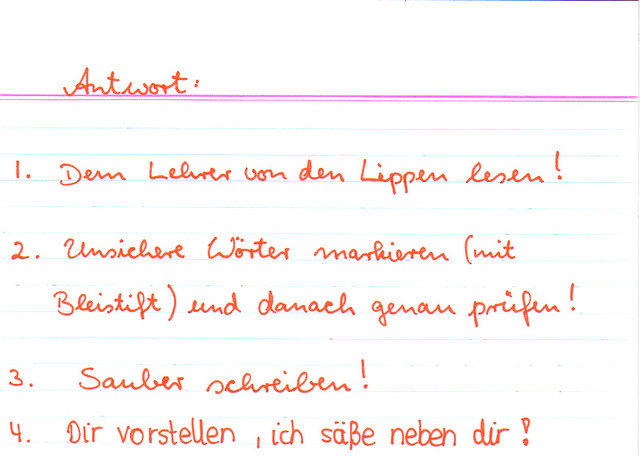 Antwort:
1. Dem Lehrer von den Lippen lesen!
2. Unsichere Wörter markieren (mit
Bleistift) und danach genau prüfen!
3. Sauber schreiben!
4. Dir vorstellen, ich säße neben dir!